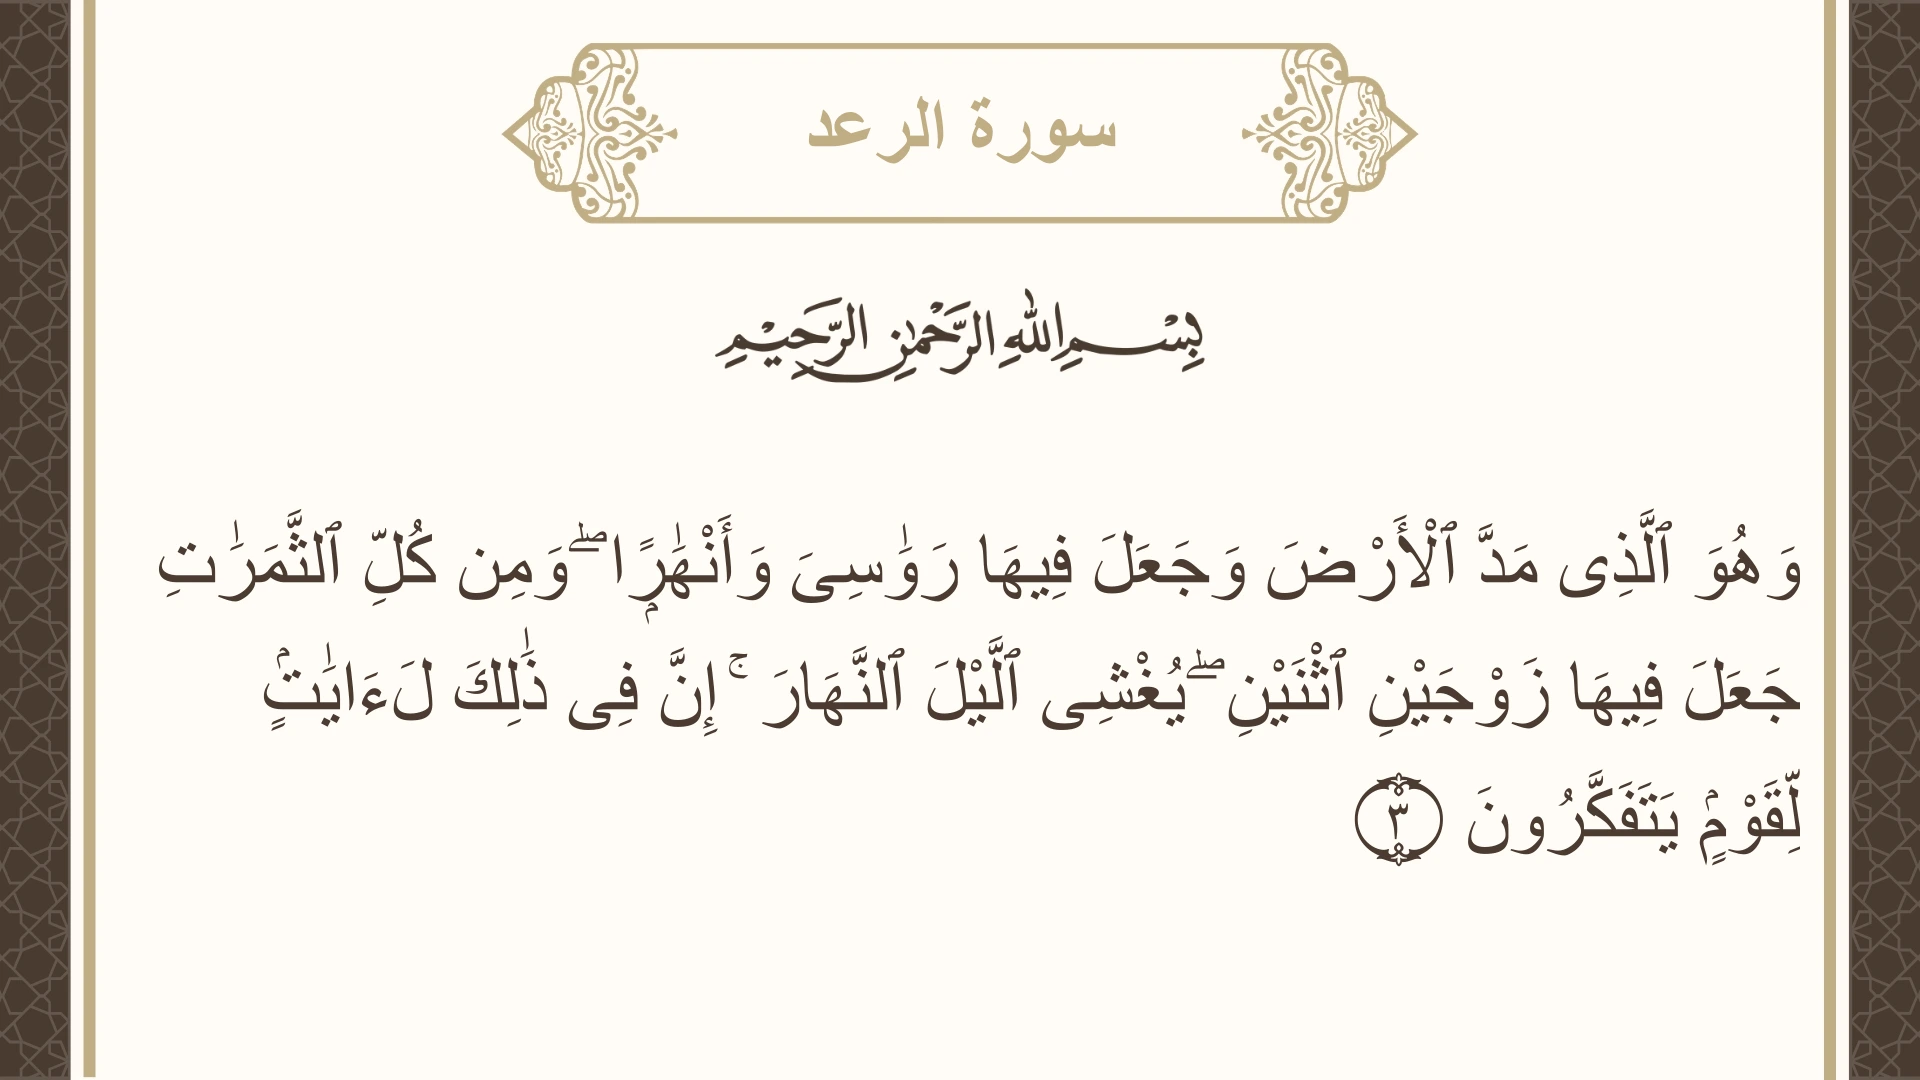 سورة الرعد
بِسْمِ اللهِ الرَّحْمٰنِ الرَّحِيْمِ
وَهُوَ ٱلَّذِى مَدَّ ٱلْأَرْضَ وَجَعَلَ فِيهَا رَوَٰسِىَ وَأَنْهَٰرًۭا ۖ وَمِن كُلِّ ٱلثَّمَرَٰتِ
جَعَلَ فِيهَا زَوْجَيْنِ ٱثْنَيْنِ ۖ يُغْشِى ٱلَّيْلَ ٱلنَّهَارَ ۚ إِنَّ فِى ذَٰلِكَ لَءَايَٰتٍۢ
لِّقَوْمٍۢ يَتَفَكَّرُونَ ٣